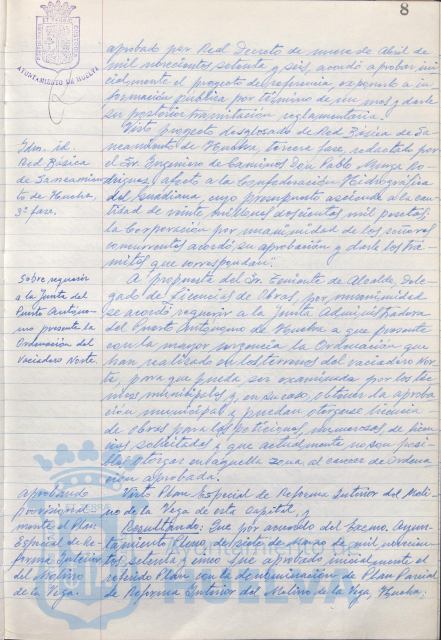 8
AYUNTAMIENTO DE HUELVA
aprobado por Real Decreto de nueve de Abril de
mil novecientos setenta y seis, acordó aprobar ini-
cialmente el proyecto de referencia, exponerlo a in-
formación pública por término de un mes y darle
su posterior tramitación reglamentaria.
Idm. id.
Red Básica
de Saneamien-
to de Huelva,
3ª fase.
Visto proyecto desglosado de Red Básica de Sa-
neamiento de Huelva, tercera fase, redactado por
el Sr. Ingeniero de Caminos Don Pablo Munza Ro-
dríguez, afecto a la Confederación Hidrográfica
del Guadiana, cuyo presupuesto asciende a la can-
tidad de veinte millones doscientas mil pesetas,
la Corporación por unanimidad de los señores
concurrentes acordó su aprobación y darle los trá-
mites que correspondan.
Sobre requerir
a la Junta del
Puerto Autóno-
mo presente la
Ordenación del
Vaciadero Norte.
A propuesta del Sr. Teniente de Alcalde, Dele-
gado de Licencias de Obras, por unanimidad
se acordó requerir a la Junta Administradora
del Puerto Autónomo de Huelva a que presente
con la mayor urgencia la Ordenación que
han realizado en los terrenos del vaciadero Nor-
te, para que pueda ser examinada por los téc-
nicos municipales y, en su caso, obtener la aproba-
ción municipal y puedan otorgarse licencias
de obras para las peticiones, numerosas de licen-
cias, solicitadas y que actualmente no son posi-
bles otorgar en aquella zona al carecer de Ordena-
ción aprobada.
Aprobando
provisional-
mente el Plan
Especial de Re-
forma Interior
del Molino
de la Vega.
Visto Plan Especial de Reforma Interior del Moli-
no de la Vega de esta capital, y
Resultando: Que por acuerdo del Excmo. Ayun-
tamiento Pleno, de siete de Marzo de mil novecien-
tos setenta y cinco fue aprobado inicialmente el
referido Plan con la denominación de Plan Parcial
de Reforma Interior del Molino de la Vega, Huelva;
HUELVA